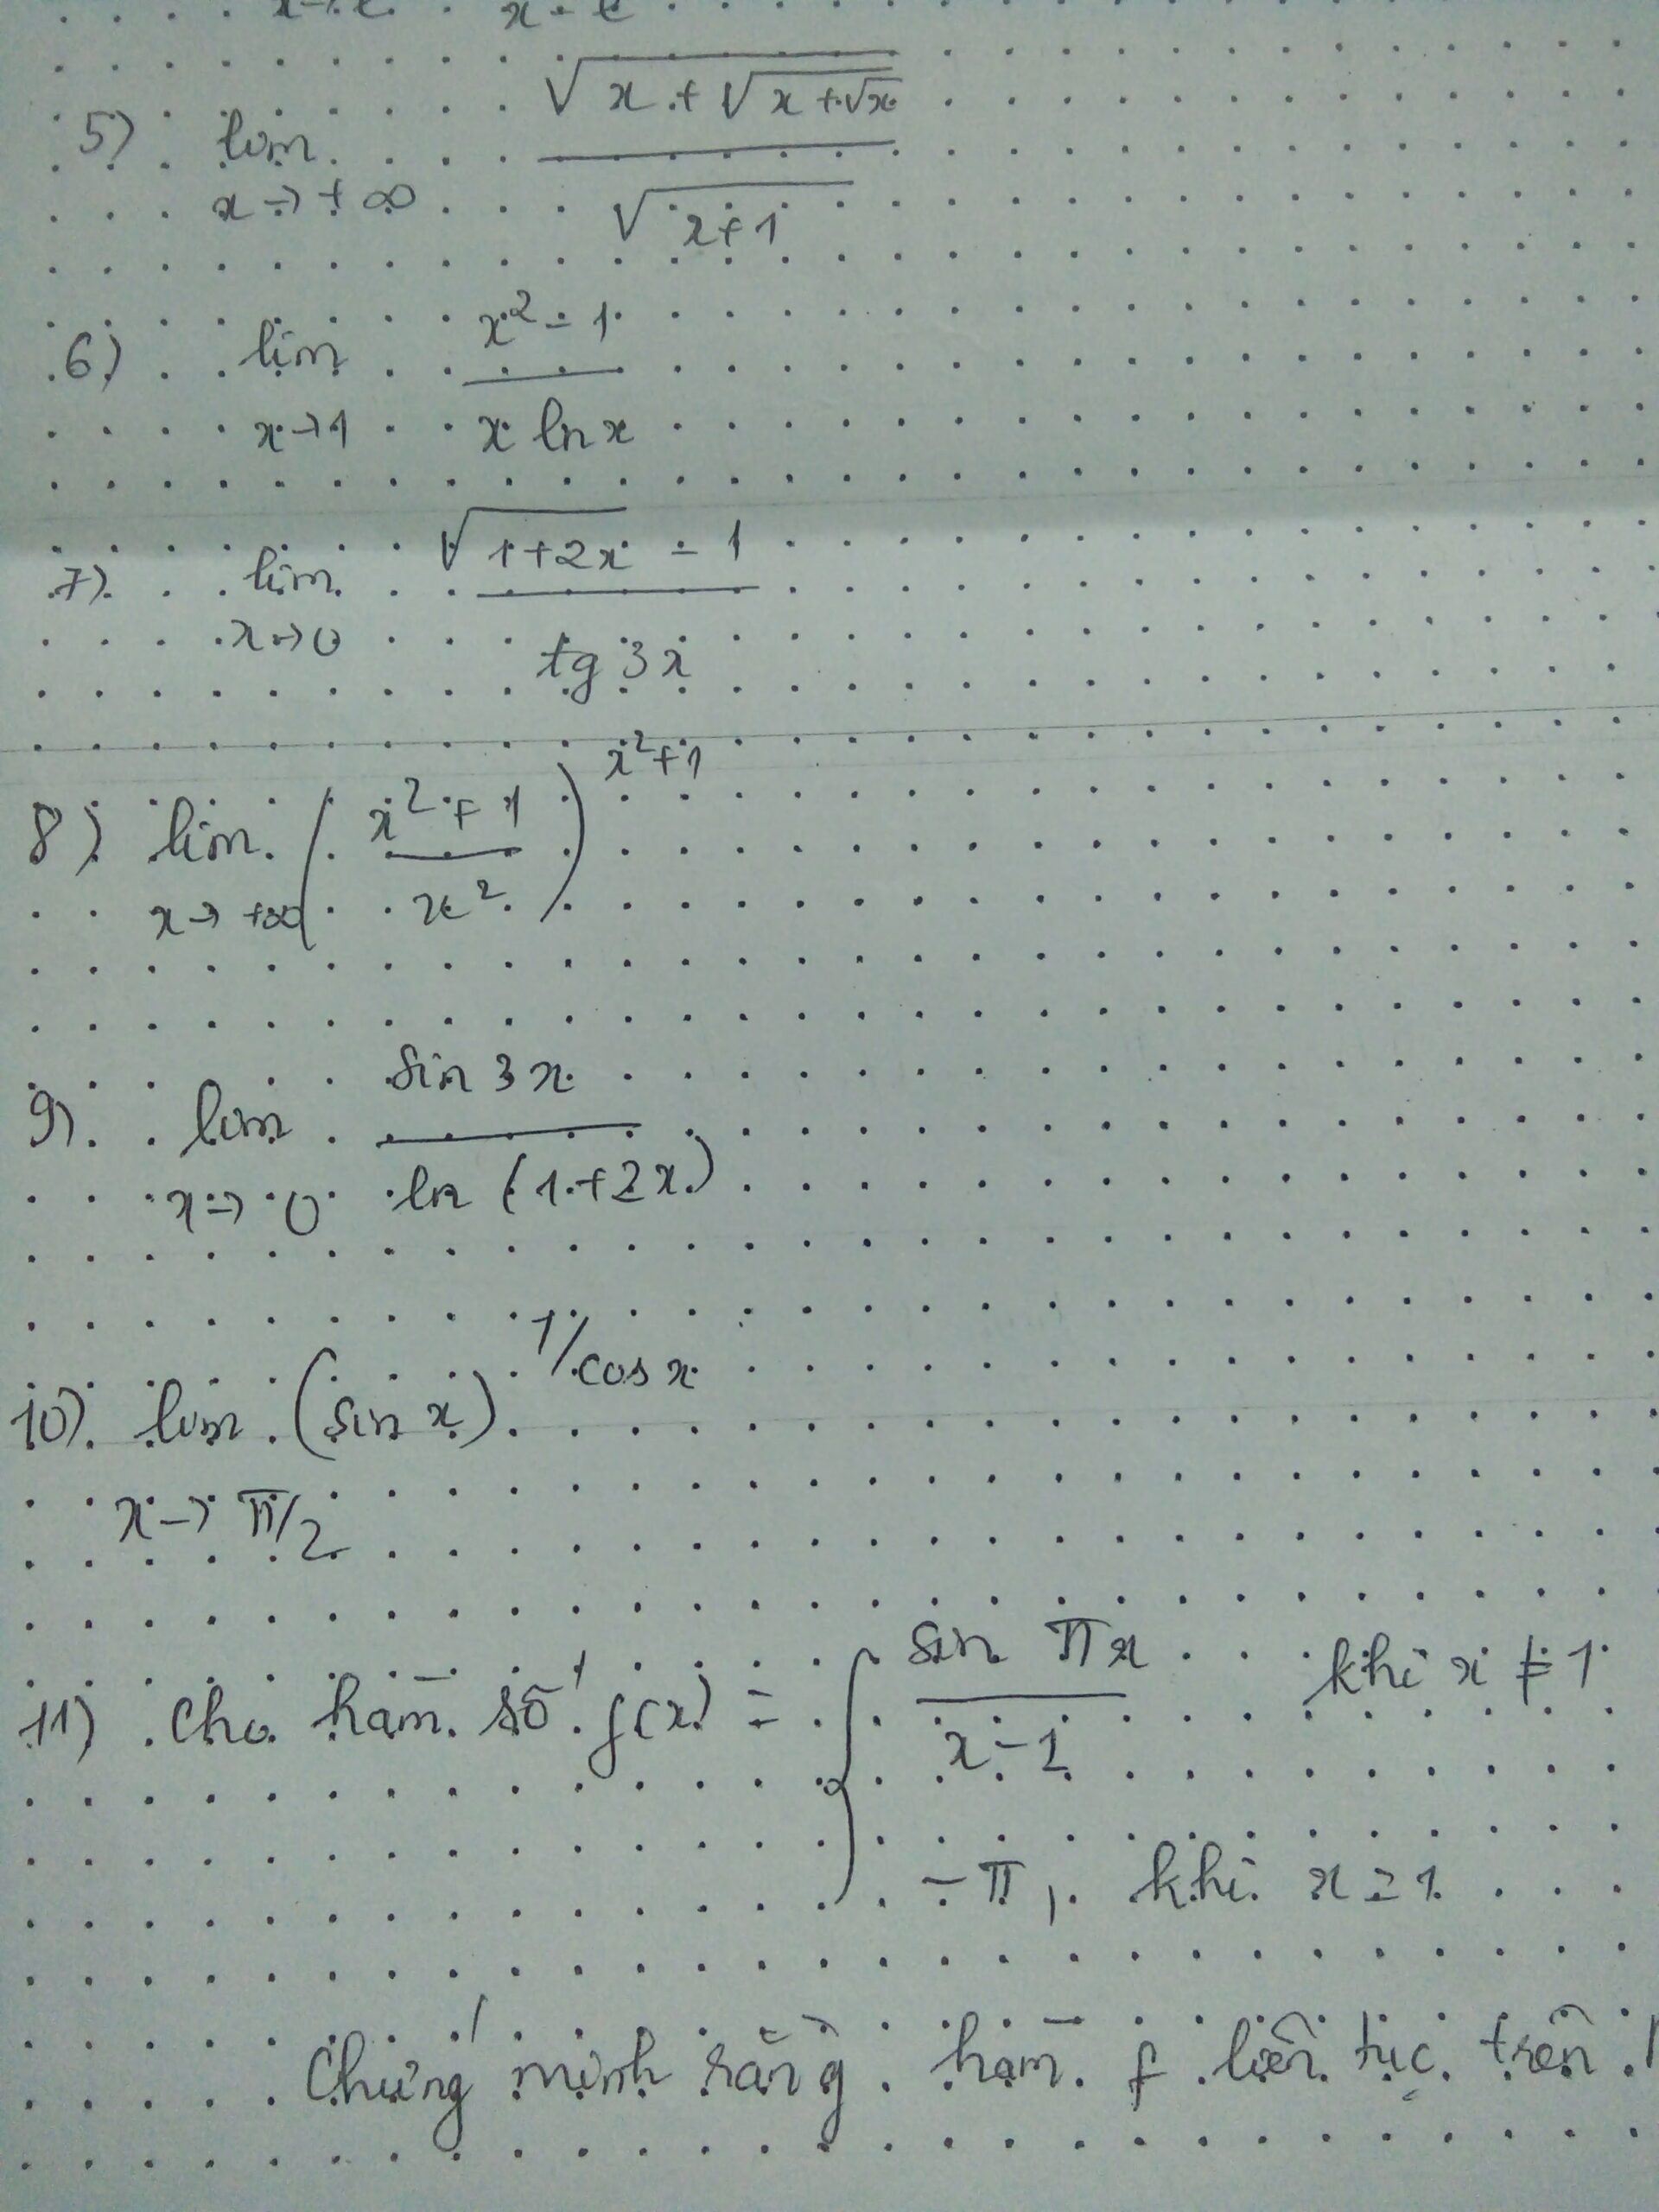 5) lim √(x + √(x + √x)) / √(x+1)
x → +∞
6) lim (x² - 1) / (x ln x)
x → 1
7) lim (√(1+2x) - 1) / (tg 3x)
x → 0
8) lim ((x² + 1) / x²)^(x²+1)
x → +∞
9) lim sin 3x / ln (1+2x)
x → 0
10) lim (sin x)^(1/cos x)
x → π/2
11) Cho hàm số f(x) = { sin πx / (x - 1) khi x ≠ 1
-π, khi x = 1
Chứng minh rằng hàm f liên tục trên